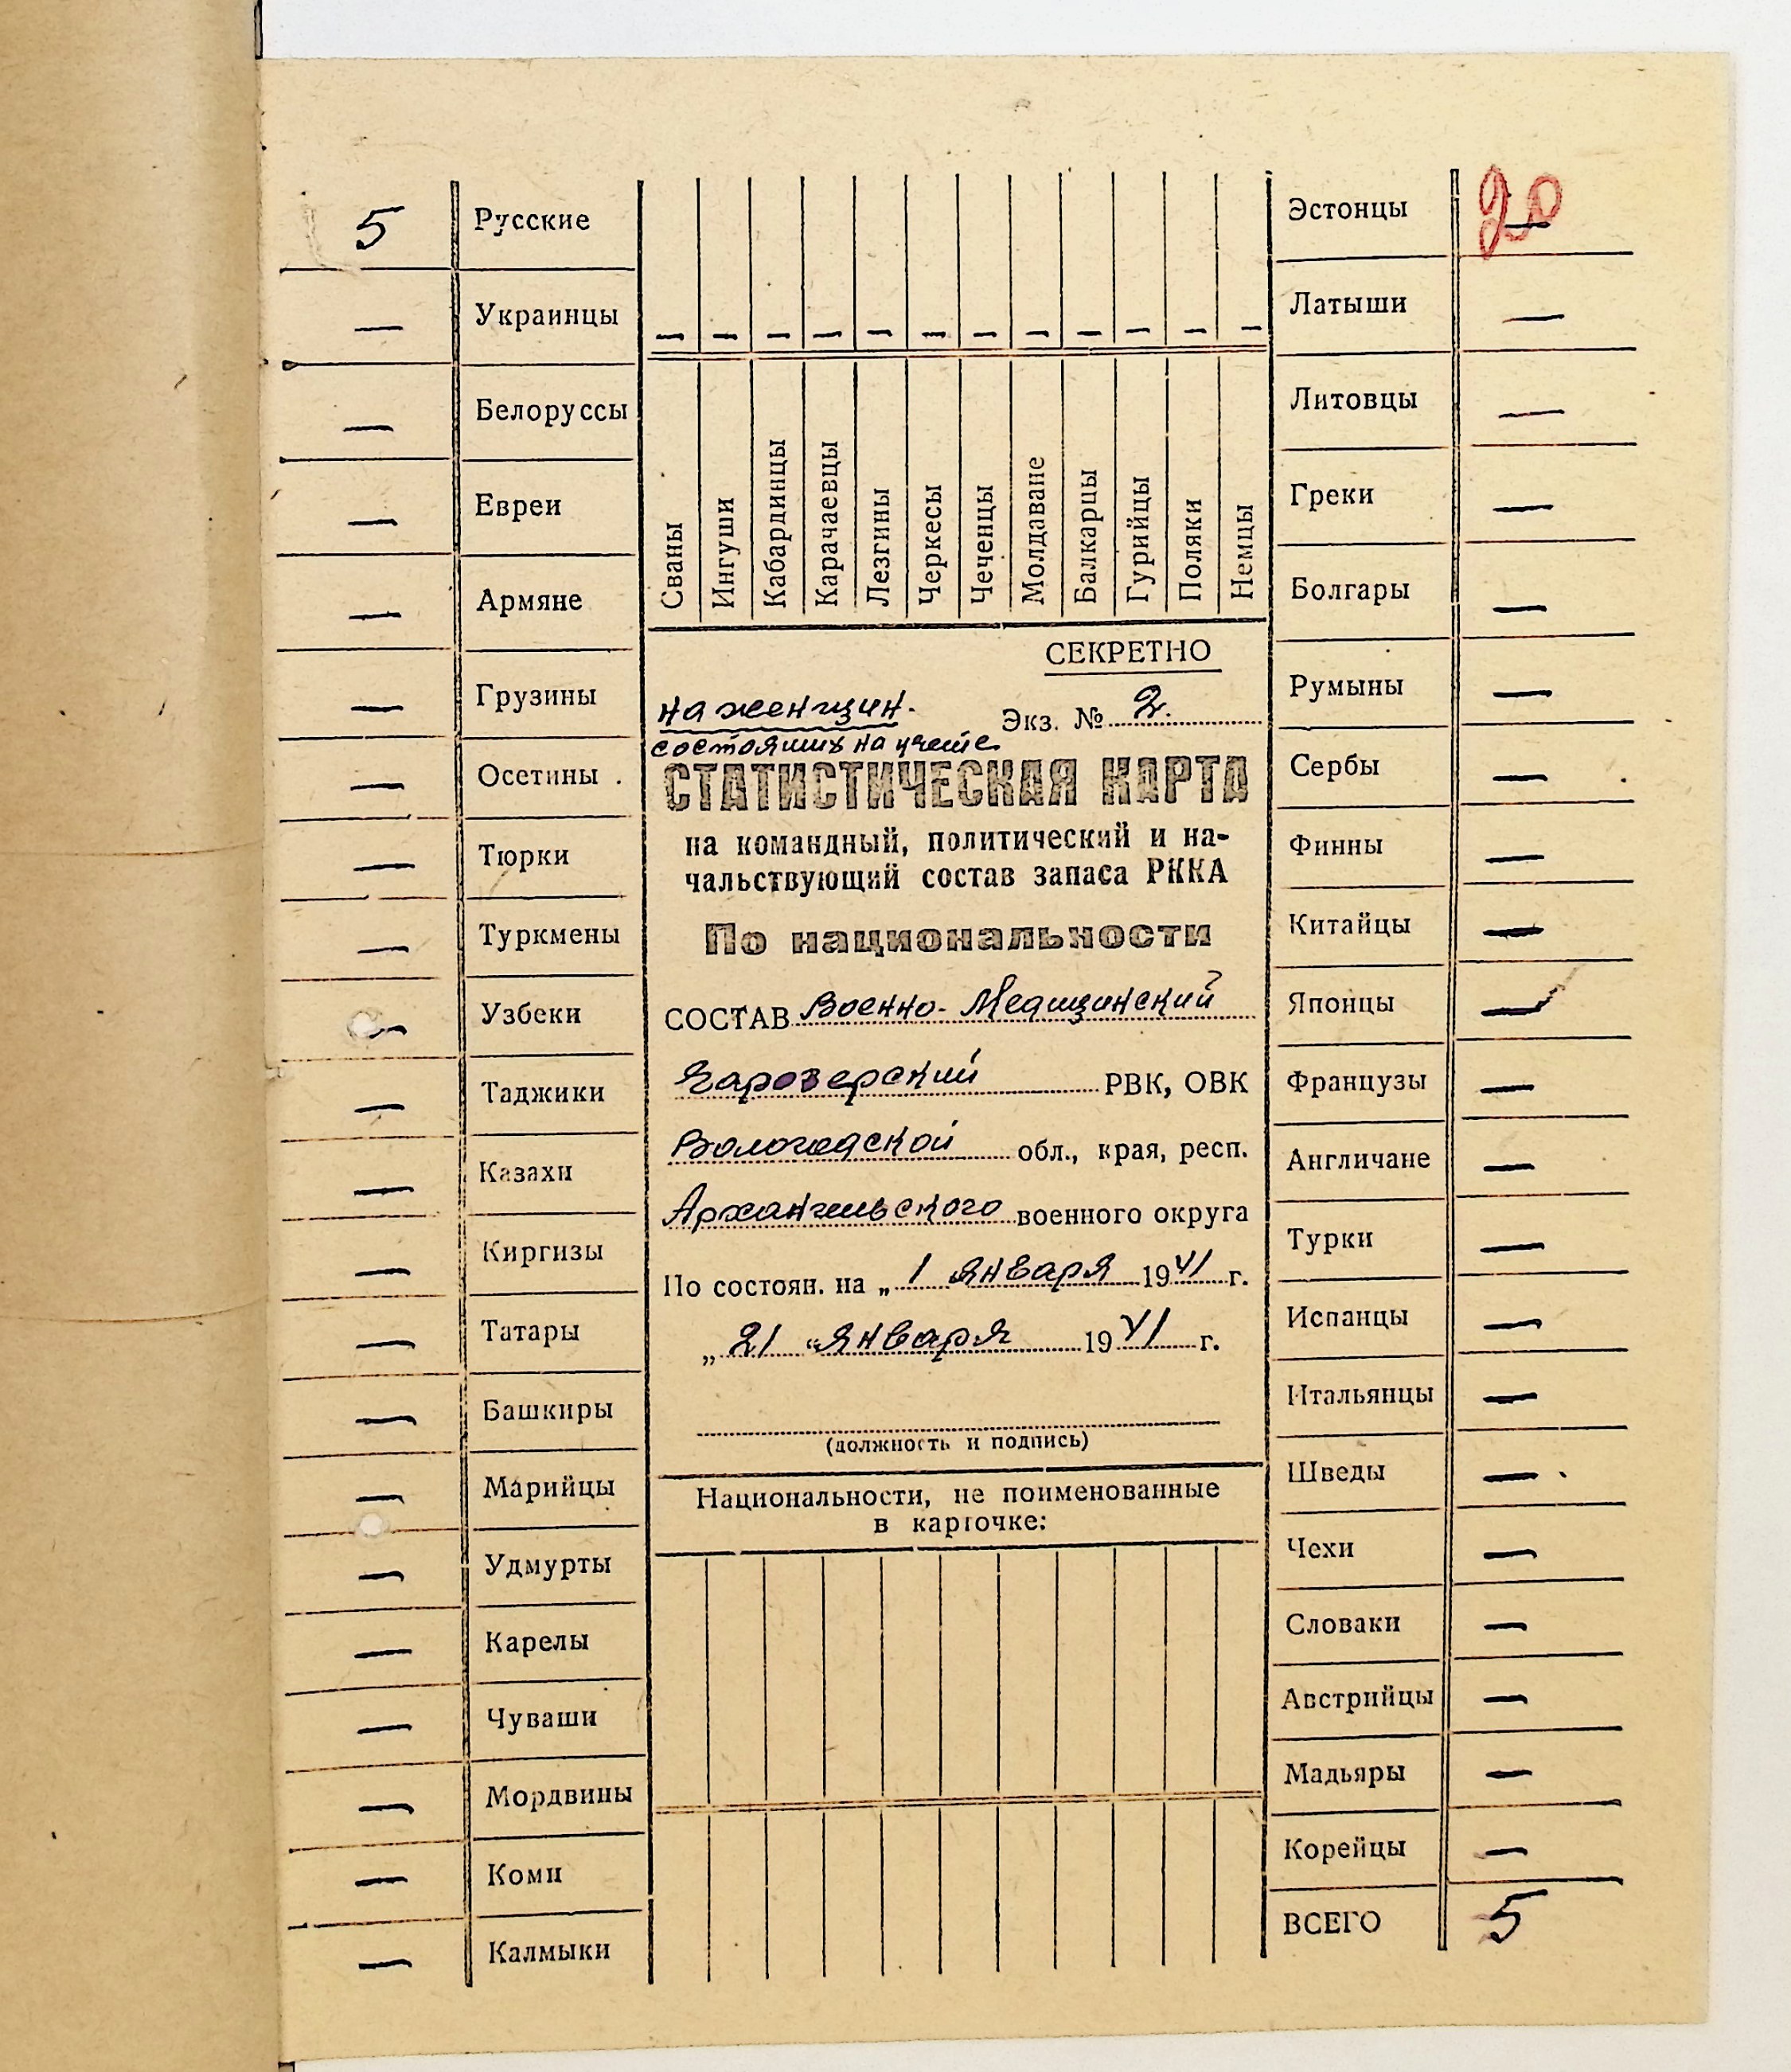 5 Русские
— Украинцы
— Белоруссы
— Евреи
— Армяне
— Грузины
— Осетины
— Тюрки
— Туркмены
— Узбеки
— Таджики
— Казахи
— Киргизы
— Татары
— Башкиры
— Марийцы
— Удмурты
— Карелы
— Чуваши
— Мордвины
— Коми
— Калмыки
— — — — — — — — — — — —
Сваны
Ингуши
Кабардинцы
Карачаевцы
Лезгины
Черкесы
Чеченцы
Молдаване
Балкарцы
Гурийцы
Поляки
Немцы
СЕКРЕТНО
на женщин.
Экз. № 2.
состоящих на учете
СТАТИСТИЧЕСКАЯ КАРТА
на командный, политический и на-
чальствующий состав запаса РККА
По национальности
СОСТАВ Военно-Медицинский
Чарозерский РВК, ОВК
Вологодской обл., края, респ.
Архангельского военного округа
По состоян. на „ 1 января 1941 г.
„ 21 “ января 1941 г.
(должность и подпись)
Национальности, не поименованные
в карточке:
20
Эстонцы —
Латыши —
Литовцы —
Греки —
Болгары —
Румыны —
Сербы —
Финны —
Китайцы —
Японцы —
Французы —
Англичане —
Турки —
Испанцы —
Итальянцы —
Шведы —
Чехи —
Словаки —
Австрийцы —
Мадьяры —
Корейцы —
ВСЕГО 5